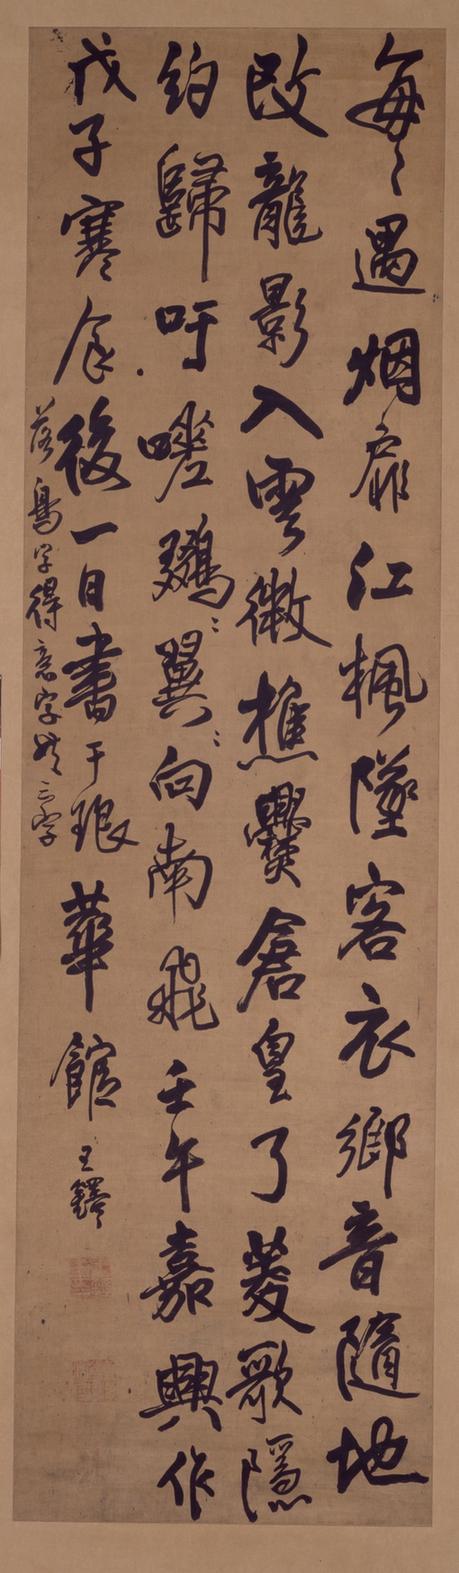 每〻遇烟扉江楓墜客衣鄉音隨地
改龍影入雲微樵爨倉皇了菱歌隱
約歸吁嗟翼向南飛壬午嘉興作
戊子寒食後一日書于琅華館王鐸
落鳥字得意字共三字